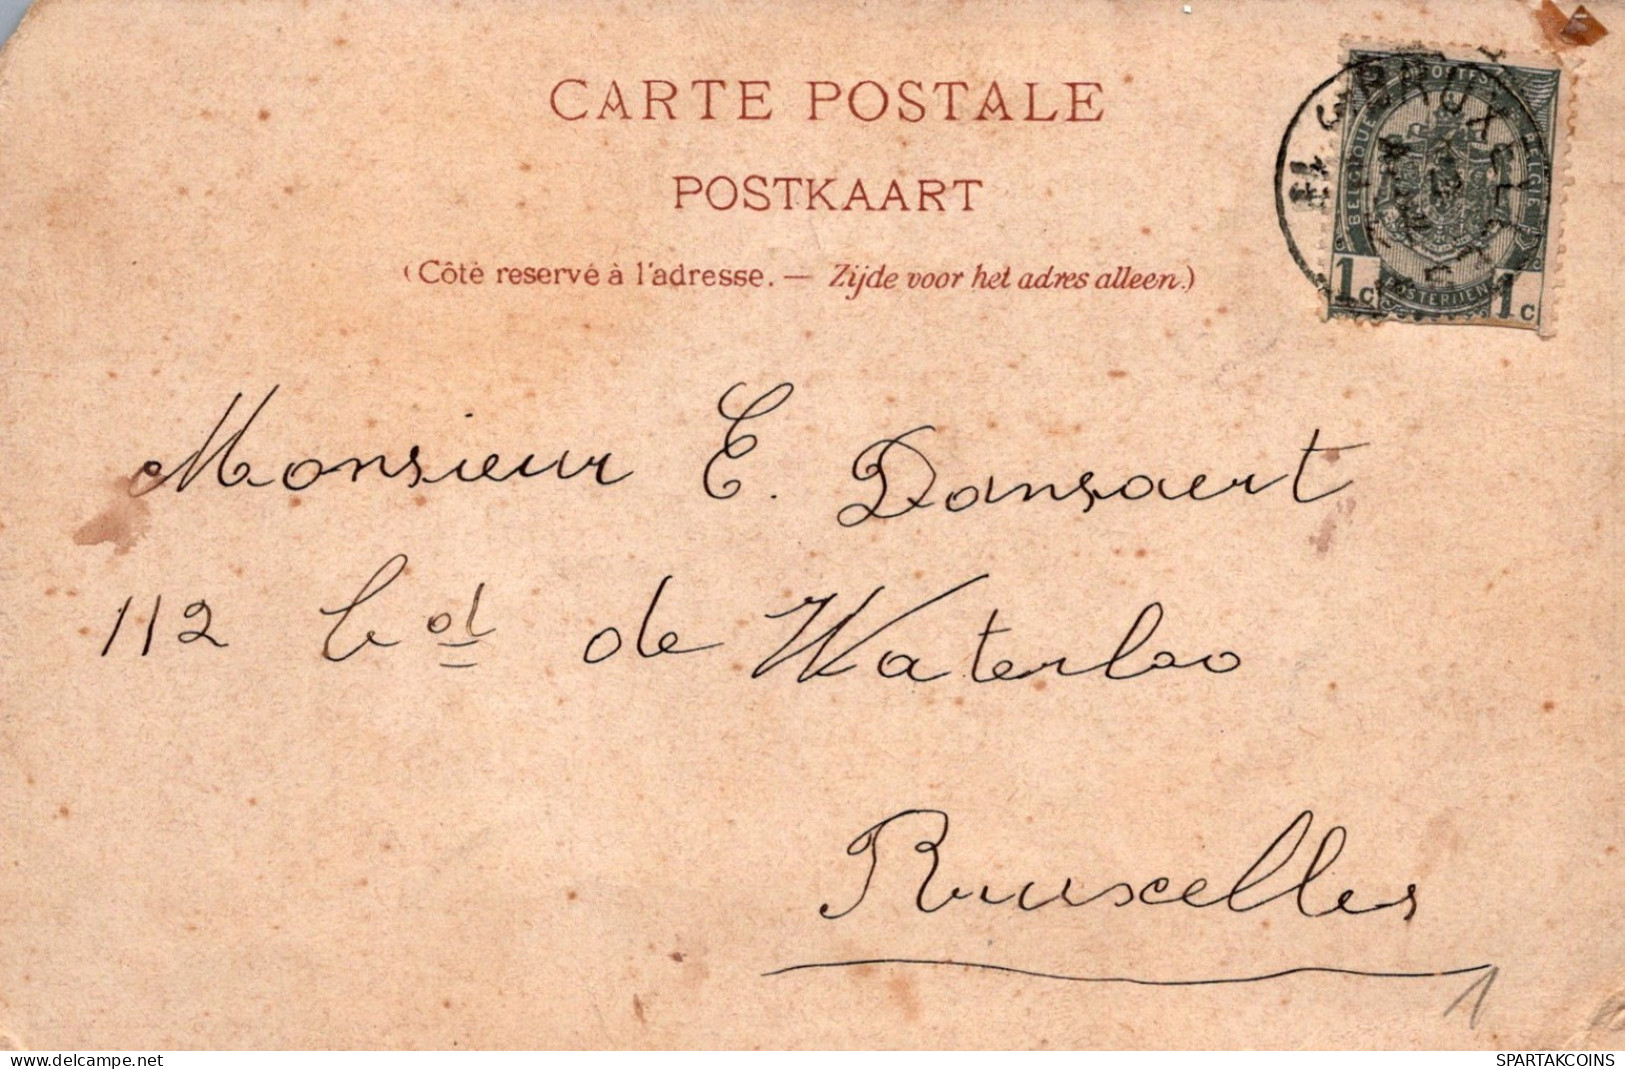 CARTE POSTALE
POSTKAART
(Côté reservé à l'adresse. — Zijde voor het adres alleen.)
BRUXELLES
BELGIQUE
BELGIE
1c 1c
Monsieur E. Dansaert
112 bd de Waterloo
Bruxelles
1
delcampe.net
SPARTAKCOINS